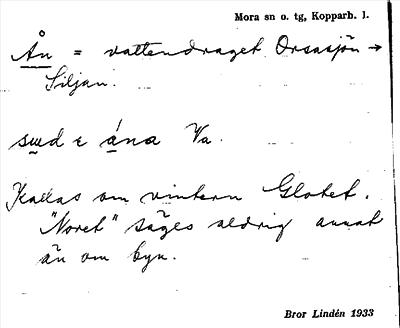 Mora sn o. tg, Kopparb. l.
Ån = vattendraget Orsasjön →
Siljan.
swd e ána Va.
Kallas om vintern Glotet.
"Noret" säges aldrig annat
än om byn.
Bror Lindén 1933